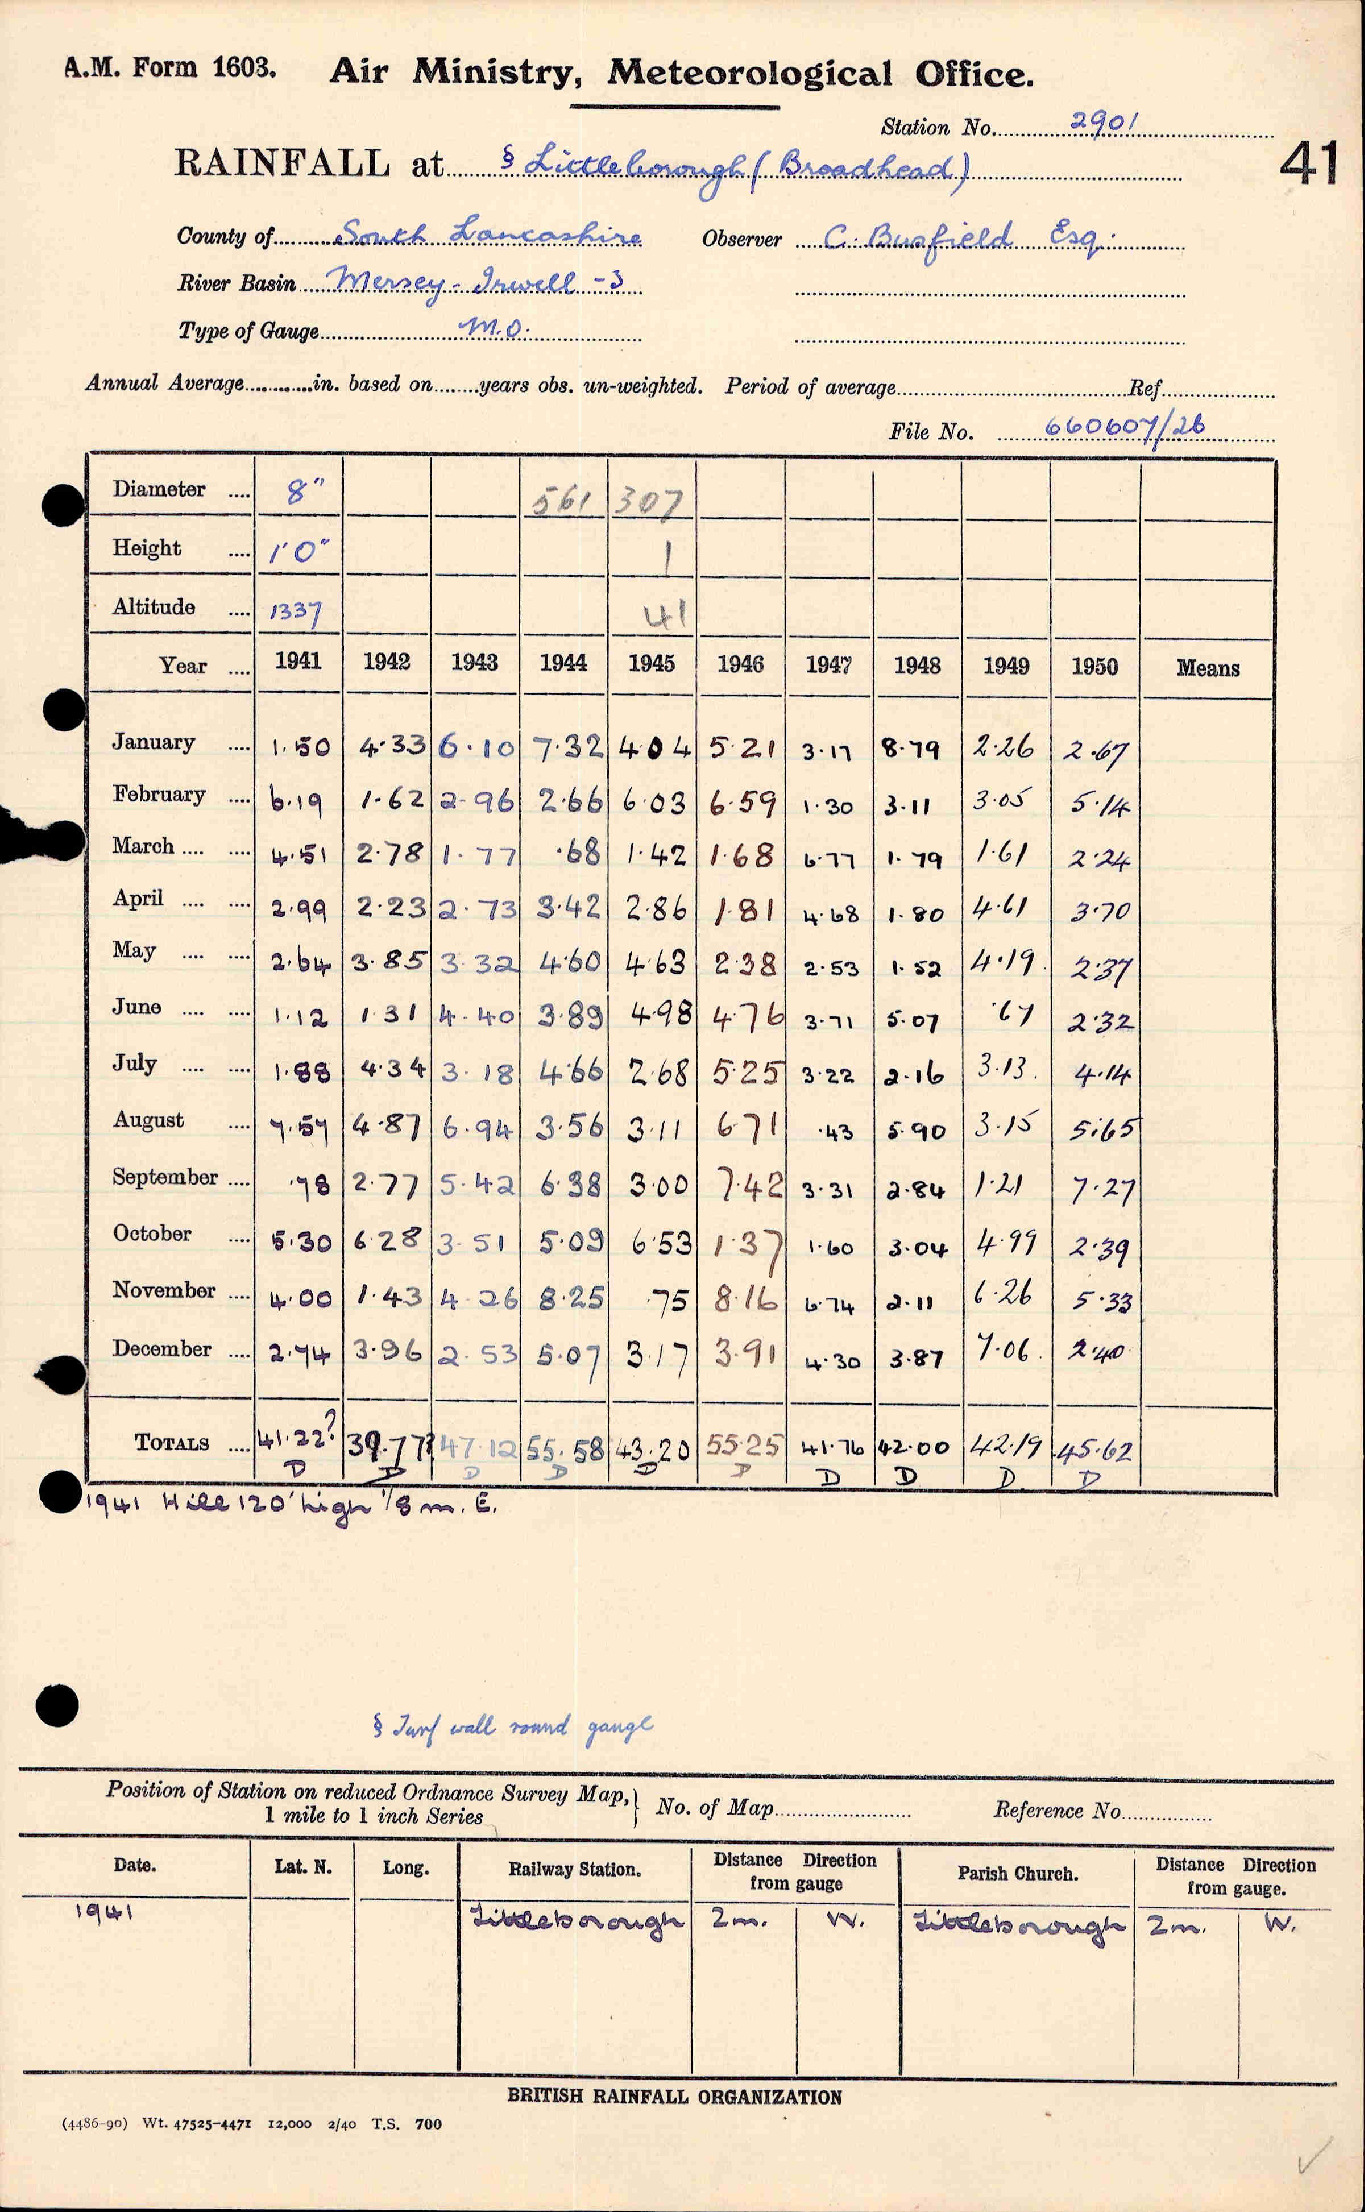 A.M. Form 1603. Air Ministry, Meteorological Office.
Station No. 2901
41
RAINFALL at § Littleborough (Broadhead)
County of South Lancashire Observer C. Busfield Esq.
River Basin Mersey-Irwell -3
Type of Gauge M.O.
Annual Average in. based on years obs. un-weighted. Period of average Ref.
File No. 660607/26
Diameter .... 8" 561 307
Height .... 1'0" 1
Altitude .... 1337 41
Year .... 1941 1942 1943 1944 1945 1946 1947 1948 1949 1950 Means
January .... 1.50 4.33 6.10 7.32 4.04 5.21 3.17 8.79 2.26 2.67
February .... 6.19 1.62 2.96 2.66 6.03 6.59 1.30 3.11 3.05 5.14
March .... .... 4.51 2.78 1.77 .68 1.42 1.68 6.77 1.79 1.61 2.24
April .... .... 2.99 2.23 2.73 3.42 2.86 1.81 4.68 1.80 4.61 3.70
May .... .... 2.64 3.85 3.32 4.60 4.63 2.38 2.53 1.52 4.19 2.37
June .... .... 1.12 1.31 4.40 3.89 4.98 4.76 3.71 5.07 .67 2.32
July .... .... 1.88 4.34 3.18 4.66 2.68 5.25 3.22 2.16 3.13 4.14
August .... 7.57 4.87 6.94 3.56 3.11 6.71 .43 5.90 3.15 5.65
September .... .78 2.77 5.42 6.38 3.00 7.42 3.31 2.84 1.21 7.27
October .... 5.30 6.28 3.51 5.09 6.53 1.37 1.60 3.04 4.99 2.39
November .... 4.00 1.43 4.26 8.25 .75 8.16 6.74 2.11 6.26 5.33
December .... 2.74 3.96 2.53 5.07 3.17 3.91 4.30 3.87 7.06 2.40
TOTALS .... 41.22? 39.77? 47.12 55.58 43.20 55.25 41.76 42.00 42.19 45.62
D D D D D D D D D D
1941 Hill 120' high 1/8 m. E.
§ Turf wall round gauge
Position of Station on reduced Ordnance Survey Map, 1 mile to 1 inch Series } No. of Map Reference No.
Date. Lat. N. Long. Railway Station. Distance Direction from gauge Parish Church. Distance Direction from gauge.
1941 Littleborough 2m. W. Littleborough 2m. W.
BRITISH RAINFALL ORGANIZATION
(4486-90) Wt. 47525-4471 12,000 2/40 T.S. 700